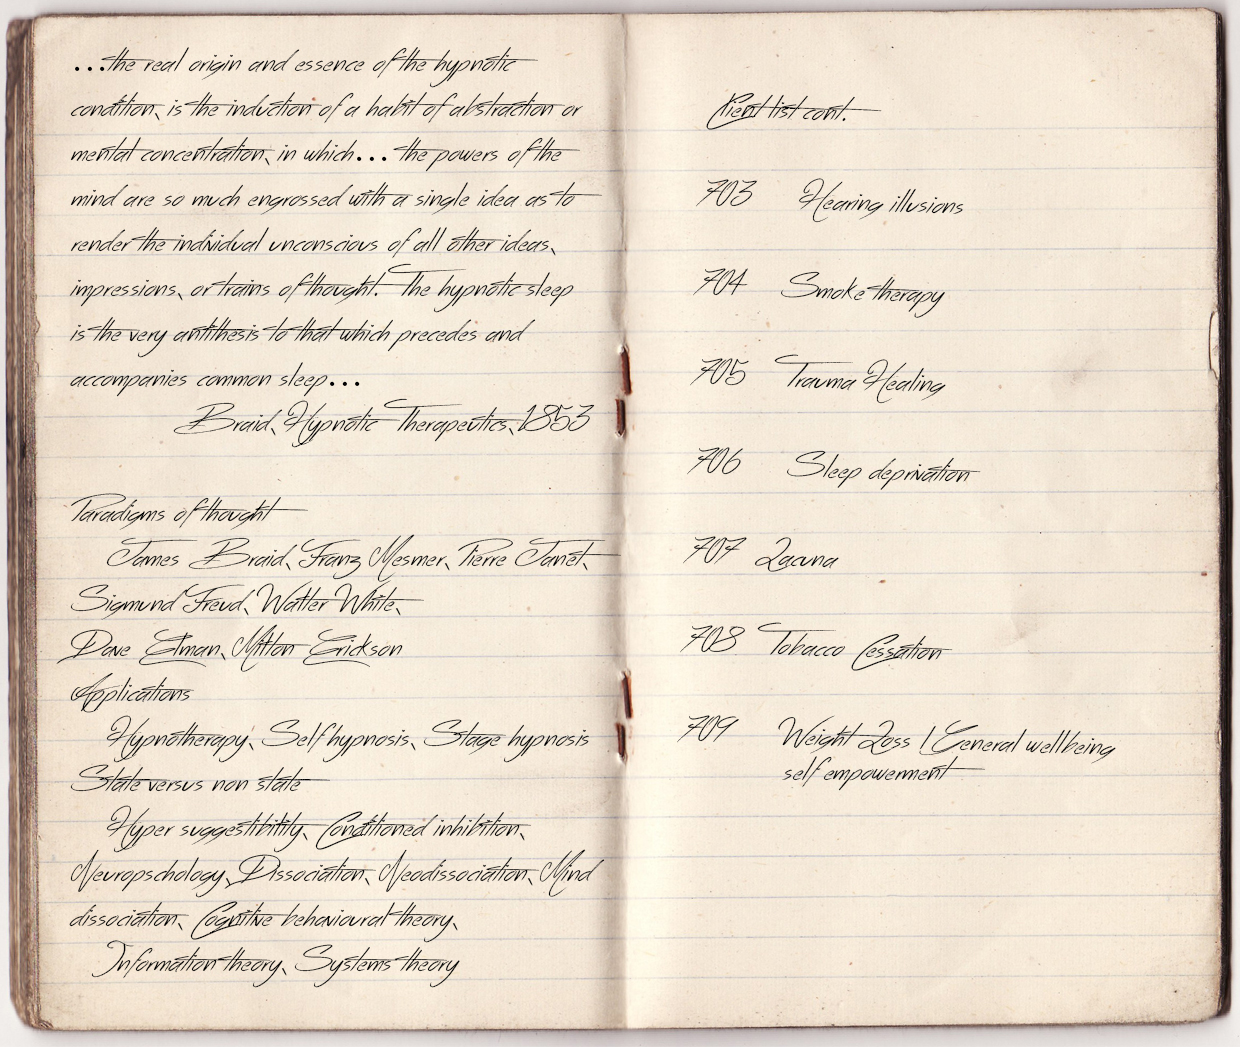 ...the real origin and essence of the hypnotic
condition, is the induction of a habit of abstraction or
mental concentration, in which... the powers of the
mind are so much engrossed with a single idea as to
render the individual unconscious of all other ideas,
impressions, or trains of thought. The hypnotic sleep
is the very antithesis to that which precedes and
accompanies common sleep...
Braid, Hypnotic Therapeutics, 1853
Paradigms of thought
James Braid, Franz Mesmer, Pierre Janet,
Sigmund Freud, Walter White,
Dave Elman, Milton Erickson
Applications
Hypnotherapy, Self hypnosis, Stage hypnosis
State versus non state
Hyper suggestibility, Conditioned inhibition,
Neuropschology, Dissociation, Neodissociation, Mind
dissociation, Cognitive behavioural theory,
Information theory, Systems theory
Client list cont.
703 Hearing illusions
704 Smoke therapy
705 Trauma Healing
706 Sleep deprivation
707 Lacuna
708 Tobacco Cessation
709 Weight Loss / General wellbeing
self empowerment